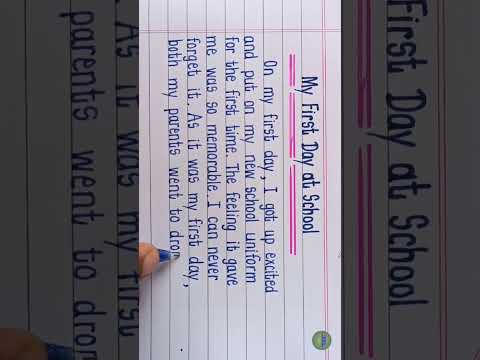 First Day at School
My First Day at School
On my first day, I got up excited
and put on my new school uniform
for the first time. The feeling it gave
me was so memorable. I can never
forget it. As it was my first day,
both my parents went to dron
. As it was my first
parents went to dron